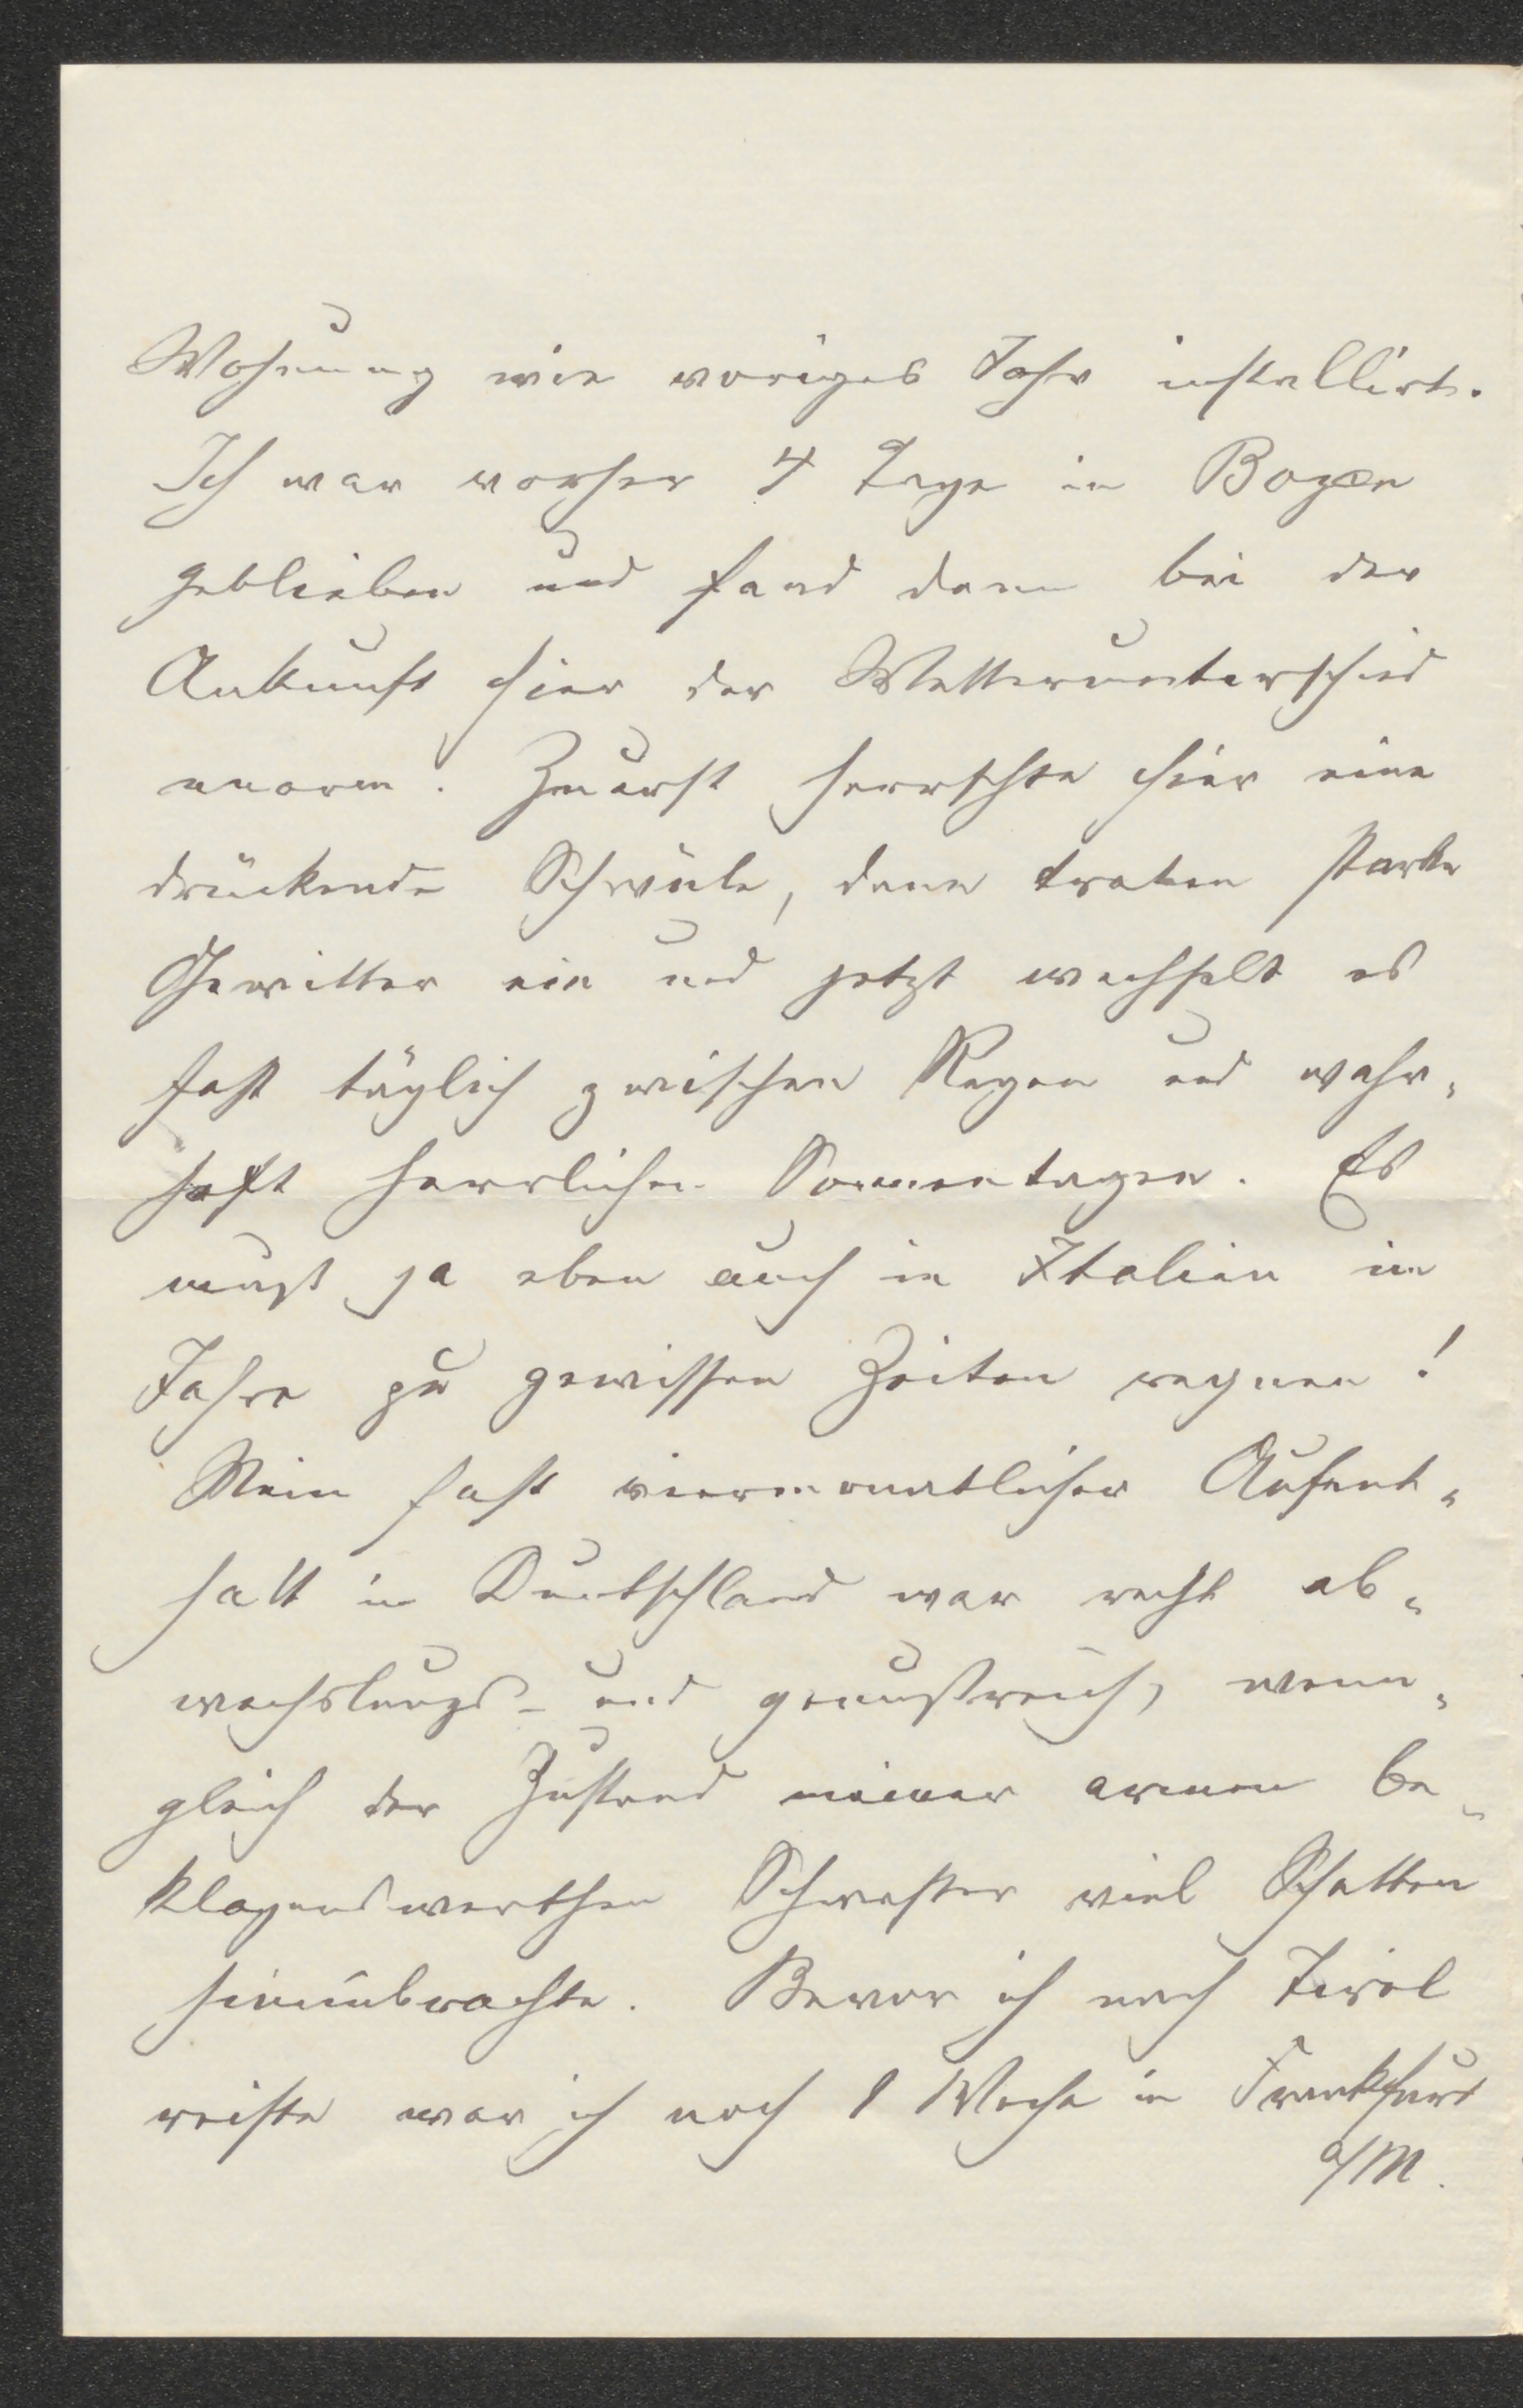 Wohnung wie voriges Jahr installirt.
Ich war vorher 4 Tage in Bozen
geblieben und fand dann bei der
Ankunft hier der Wetterunterschied
enorm. Zuerst herrschte hier eine
drückende Schwüle, dann traten starke
Gewitter ein und jetzt wechselt es
fast täglich zwischen Regen und wahr-
haft herrlichen Sonnentagen. Es
muß ja eben auch in Italien im
Jahre zu gewissen Zeiten regnen!
Mein fast viermonatlicher Aufent-
halt in Deutschland war recht ab-
wechslungs- und genußreich, wenn-
gleich der Zustand meiner armen be-
klagenswerthen Schwester viel Schatten
hineinbrachte. Bevor ich nach Tirol
reiste war ich noch 1 Woche in Frankfurt
a/M.